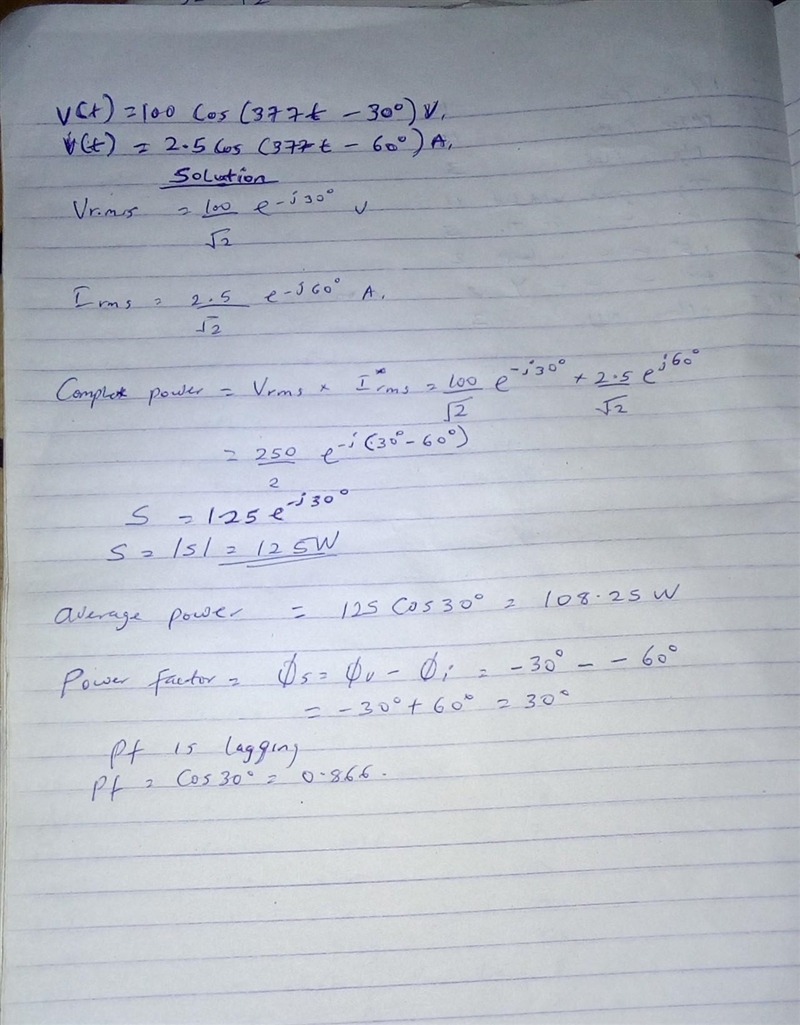 V(t) = 100 Cos (377t - 30°) V.
i(t) = 2.5 Cos (377t - 60°) A.
Solution
Vrms = 100/√2 e^-j30° V
Irms = 2.5/√2 e^-j60° A.
Complex power = Vrms × I*rms = 100/√2 e^-j30° × 2.5/√2 e^j60°
= 250/2 e^-j(30°-60°)
S = 125 e^-j30°
S = |S| = 125W
average power = 125 Cos 30° = 108.25 W
Power factor = Φs = Φv - Φi = -30° - -60°
= -30° + 60° = 30°
Pf is lagging
Pf = Cos 30° = 0.866.